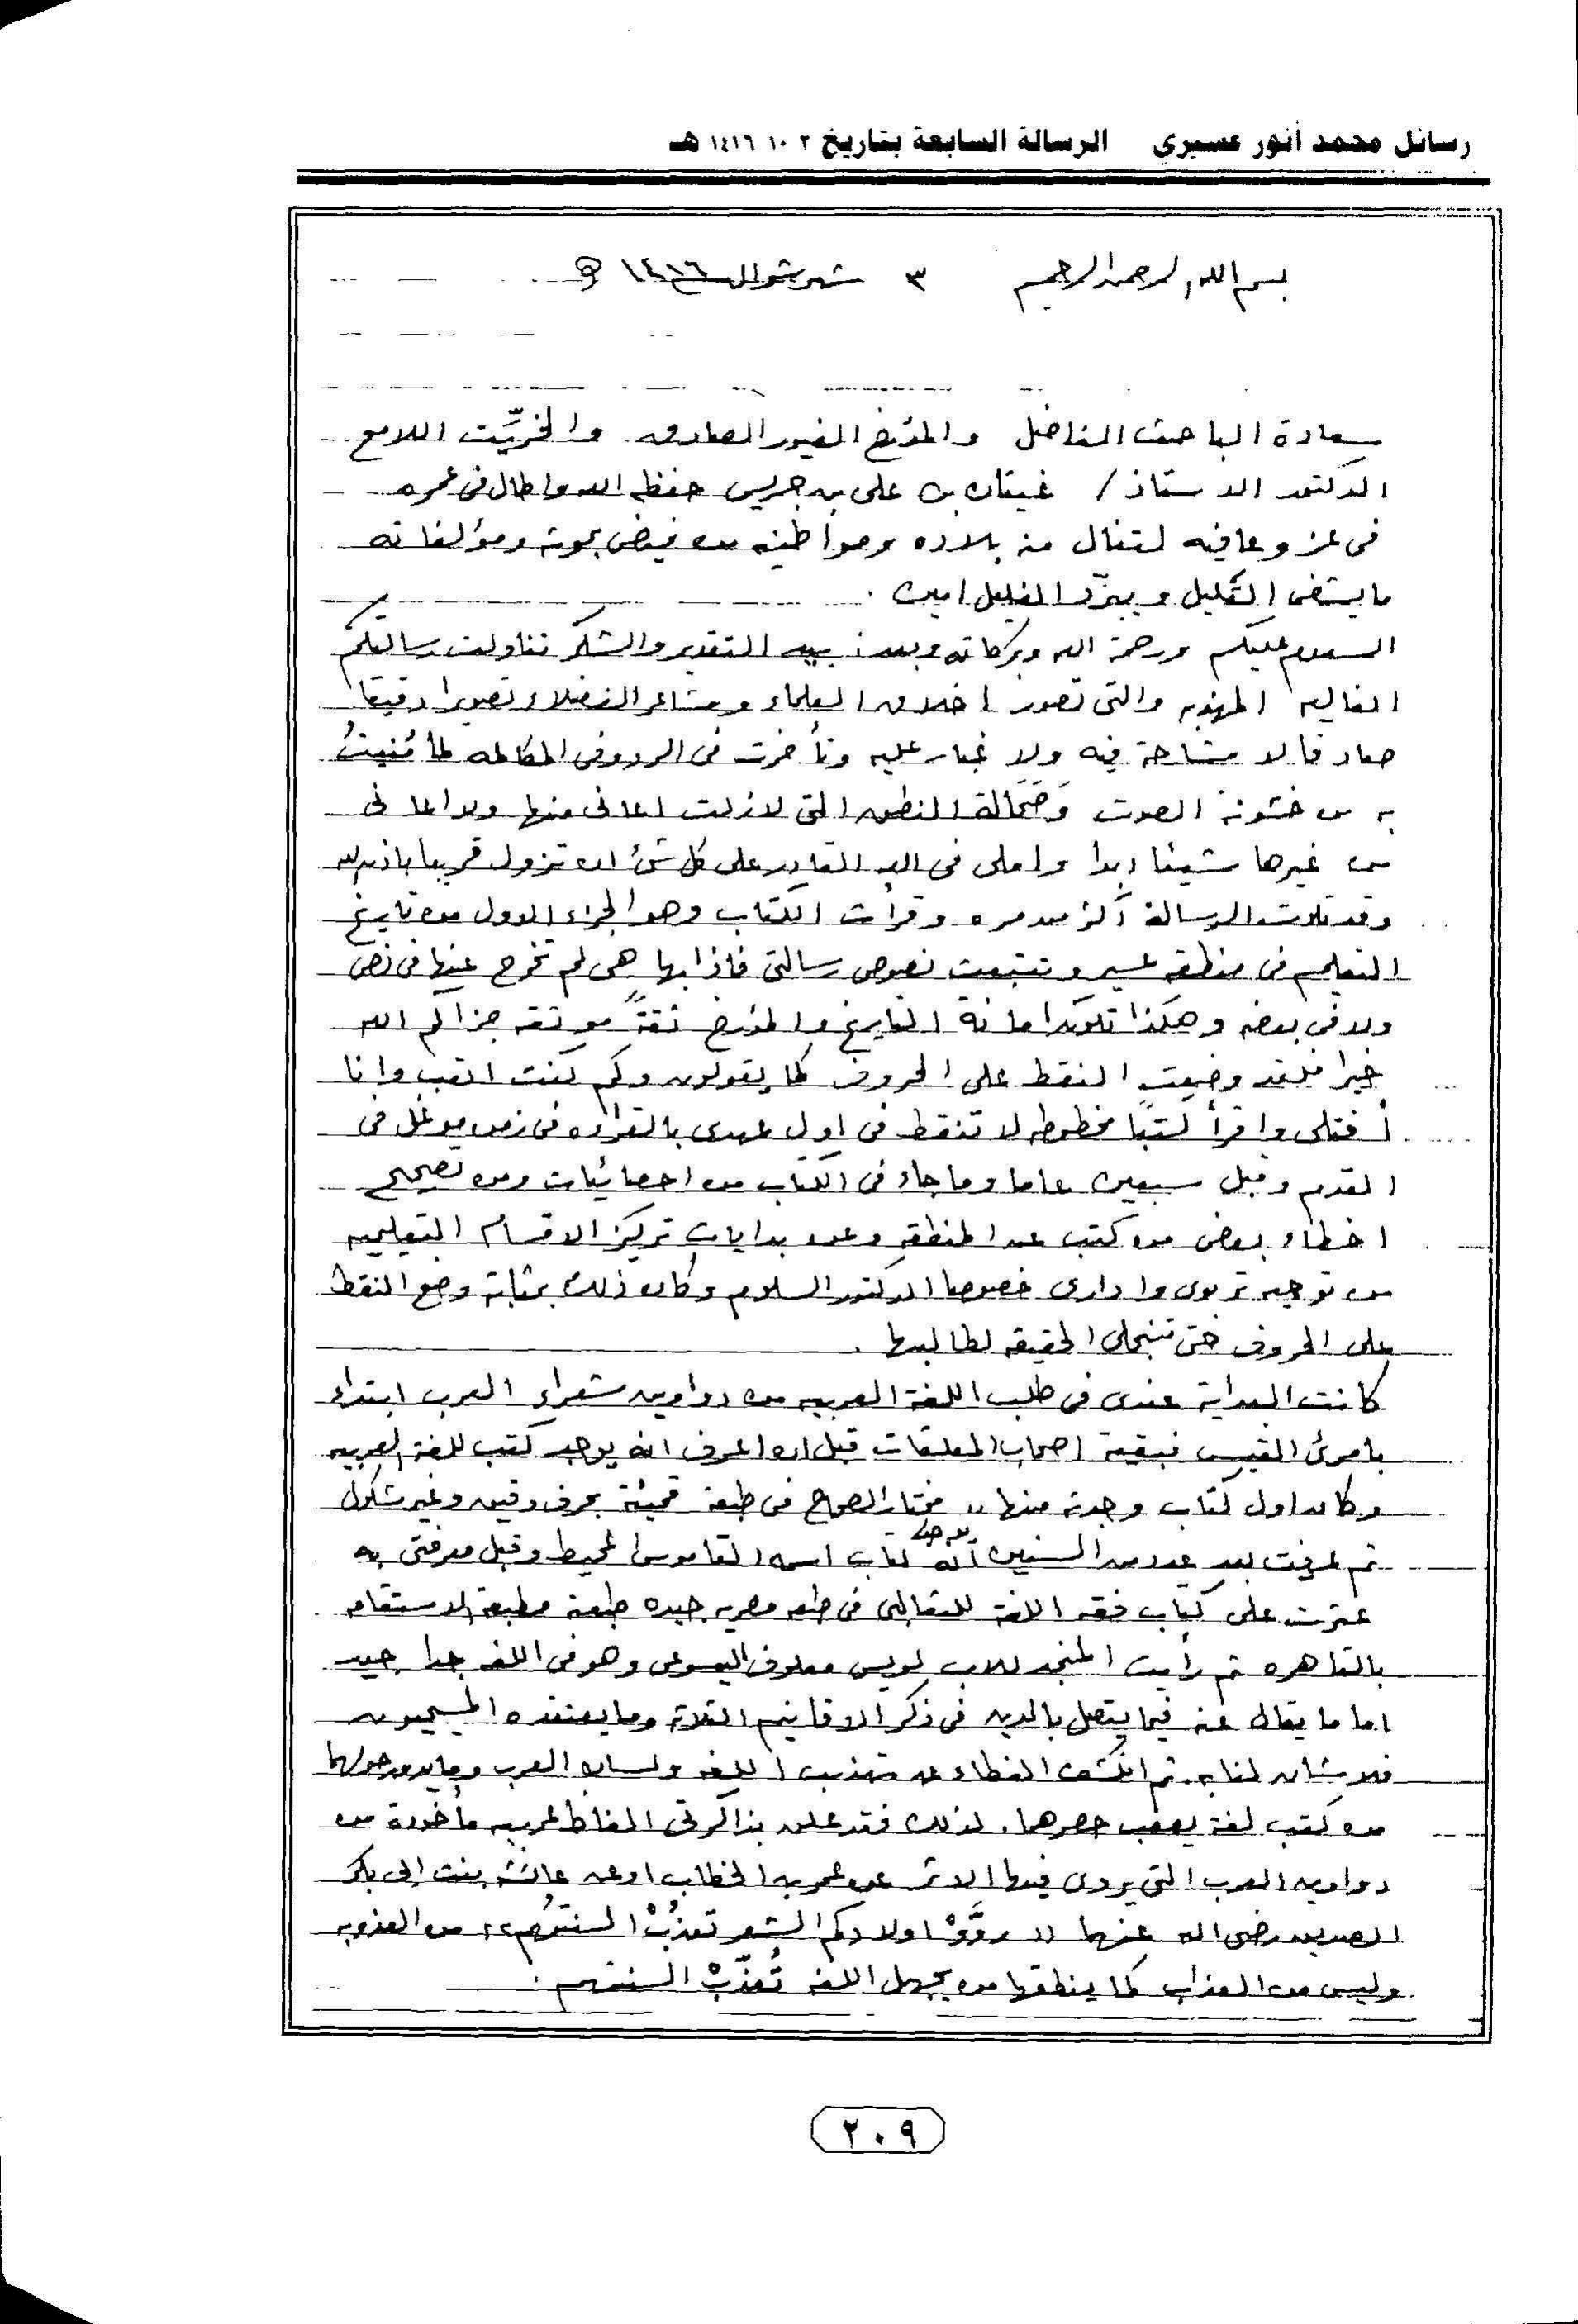 رسائل محمد أنور عسيري الرسالة السابعة بتاريخ ٢ ١٠ ١٤١٦ هـ
بسم الله الرحمن الرحيم ٣ شهر شوال ١٤١٦ هـ
سعادة الباحث الفاضل والمؤرخ الغيور الصادق والخرِّيت اللامع
الدكتور الاستاذ / غيثان بن على بن جريس حفظه الله واطال فى عمره
فى عز وعافيه لتنال منه بلاده ومواطنيه من فيض بحوثه ومؤلفاته
ما يشفى العليل ويبرّد الغليل امين .
السلام عليكم ورحمة الله وبركاته وبعد : بيد التقدير والشكر تناولت رسالتكم
الغاليه المهذبه والتى تصور اخلاق العلماء ومشاعر الفضلاء تصويرا دقيقا
صادقا لا مشاحة فيه ولا غبار عليه وتأخرت فى الرد وفى المكالمه لما مُنيتُ
به من خشونة الصوت وضحالة النطق التى لازلت اعانى منها ولا اعانى
من غيرها شيئا ابدا واملى فى الله القادر على كل شئ ان تزول قريبا باذن الله
وقد تلوت الرسالة اكثر من مره وقرأت الكتاب وهو الجزء الاول من تاريخ
التعليم فى منطقه عسير وتتبعت نصوص رسالتى فاذا بها هى لم تخرج عنها فى نص
ولا فى بعضه وهكذا تكون امانة التاريخ والمؤرخ ثقةً موثقه جزاكم الله
خيرا فلقد وضعت النقط على الحروف كما يقولون وكم كنت اتعب وانا
أفتلى واقرأ كتبًا مخطوطه لا تنقط فى اول عهدى بالقراءه فى زمن موغل فى
القدم وقبل سبعين عاما وما جاء فى الكتاب من احصائيات ومن تصحيح
اخطاء بعض من كتب عن المنطقه وعن بدايات تركيز الاقسام التعليميه
من توجيه تربوى وادارى خصوصا الدكتور السلوم وكان ذلك بمثابة وضع النقط
على الحروف حتى تنجلى الحقيقه لطالبها .
كانت البداية عندى فى طلب اللغة العربيه من دواوين شعراء العرب ابتداء
بامرئ القيس فبقية اصحاب المعلقات قبل ان اعرف انه يوجد كتب للغة العربيه
وكان اول كتاب وجدته منها ,, مختار الصحاح فى طبعة قميئة بحرف دقيق وغير مشكول
ثم عرفت بعد عدد من السنين أنه يوجد كتاب اسمه القاموس المحيط وقبل معرفتى به
عثرت على كتاب فقه اللغة للثعالبى فى طبعه مصريه جيده طبعة مطبعة الاستقامه
بالقاهره ثم رأيت المنجد للاب لويس معلوف اليسوعى وهو فى اللغه جدا جيد
اما ما يقال عنه فيما يتصل بالدين فى ذكر الاقانيم الثلاثة وما يعتقده المسيحيون
فلا شأن لنا به . ثم انكشف الغطاء عن تهذيب اللغه ولسان العرب وما يدور حولهما
من كتب لغة يصعب حصرهما . لذلك فقد علق بذاكرتى الفاظ عربيه مأخوذة من
دواوين العرب التى يروى فيها الاثر عن عمر بن الخطاب او عن عائشة بنت ابى بكر
الصديق رضى الله عنهما (( روَّوْ اولادكم الشعر تعذُبْ السنتهم ,, من العذوبه
وليس من العذاب كما ينطقها من يجهل اللغه تُعذّبْ السنتهم .
٢٠٩